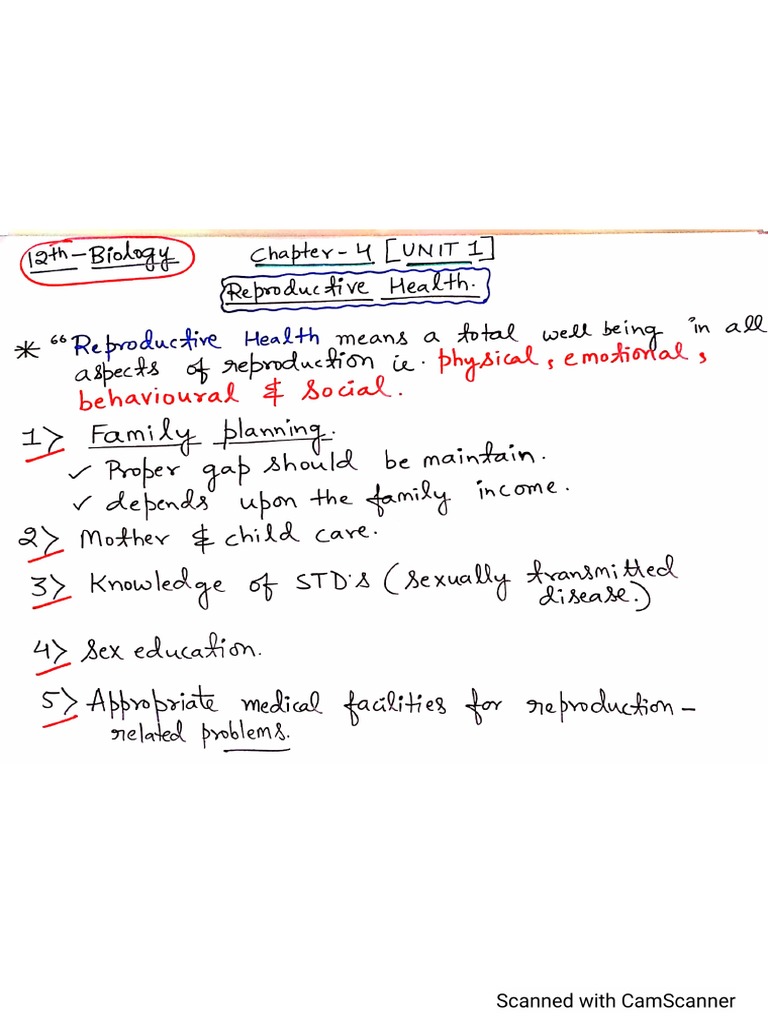 12th - Biology Chapter - 4 [UNIT 1]
Reproductive Health.
* "Reproductive Health means a total well being in all
aspects of reproduction ie. physical, emotional,
behavioural & social.
1> Family planning.
✓ Proper gap should be maintain.
✓ depends upon the family income.
2> Mother & child care.
3> Knowledge of STD's (sexually transmitted
disease.)
4> Sex education.
5> Appropriate medical facilities for reproduction -
related problems.
Scanned with CamScanner